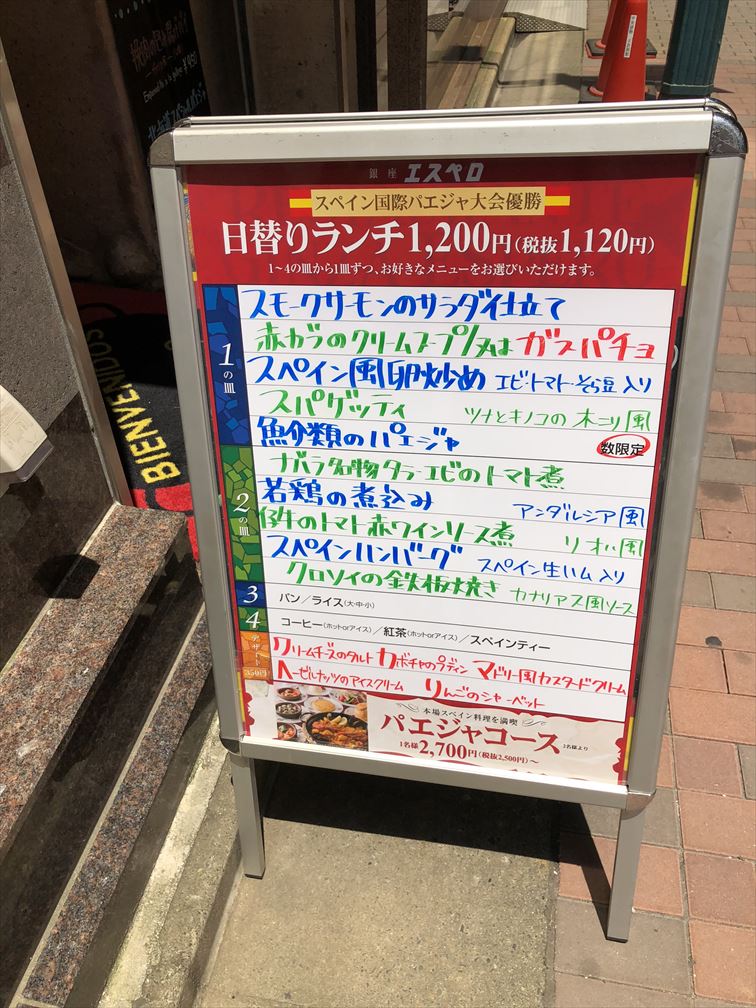 銀座 エスペロ
スペイン国際パエジャ大会優勝
日替りランチ1,200円(税抜1,120円)
1~4の皿から1皿ずつ、お好きなメニューをお選びいただけます。
1の皿
スモークサーモンのサラダ仕立て
赤カブのクリームスープ/又は ガスパチョ
スペイン風卵炒め エビ・トマト・そら豆 入り
スパゲッティ ツナとキノコの木こり風
魚介類のパエジャ 数限定
2の皿
ナバラ名物タラ・エビのトマト煮
若鶏の煮込み アンダルシア風
仔牛のトマト赤ワインソース煮 リオハ風
スペインハンバーグ スペイン生ハム入り
クロソイの鉄板焼き カナリアス風ソース
3 パン/ライス(大・中・小)
4 コーヒー(ホットorアイス)/紅茶(ホットorアイス)/スペインティー
デザート 350円
クリームチーズのタルト カボチャのプディン マドリー風カスタードクリーム
ヘーゼルナッツのアイスクリーム りんごのシャーベット
本場スペイン料理を満喫
パエジャコース 2名様より
1名様2,700円(税抜2,500円)~
BIENVENIDOS